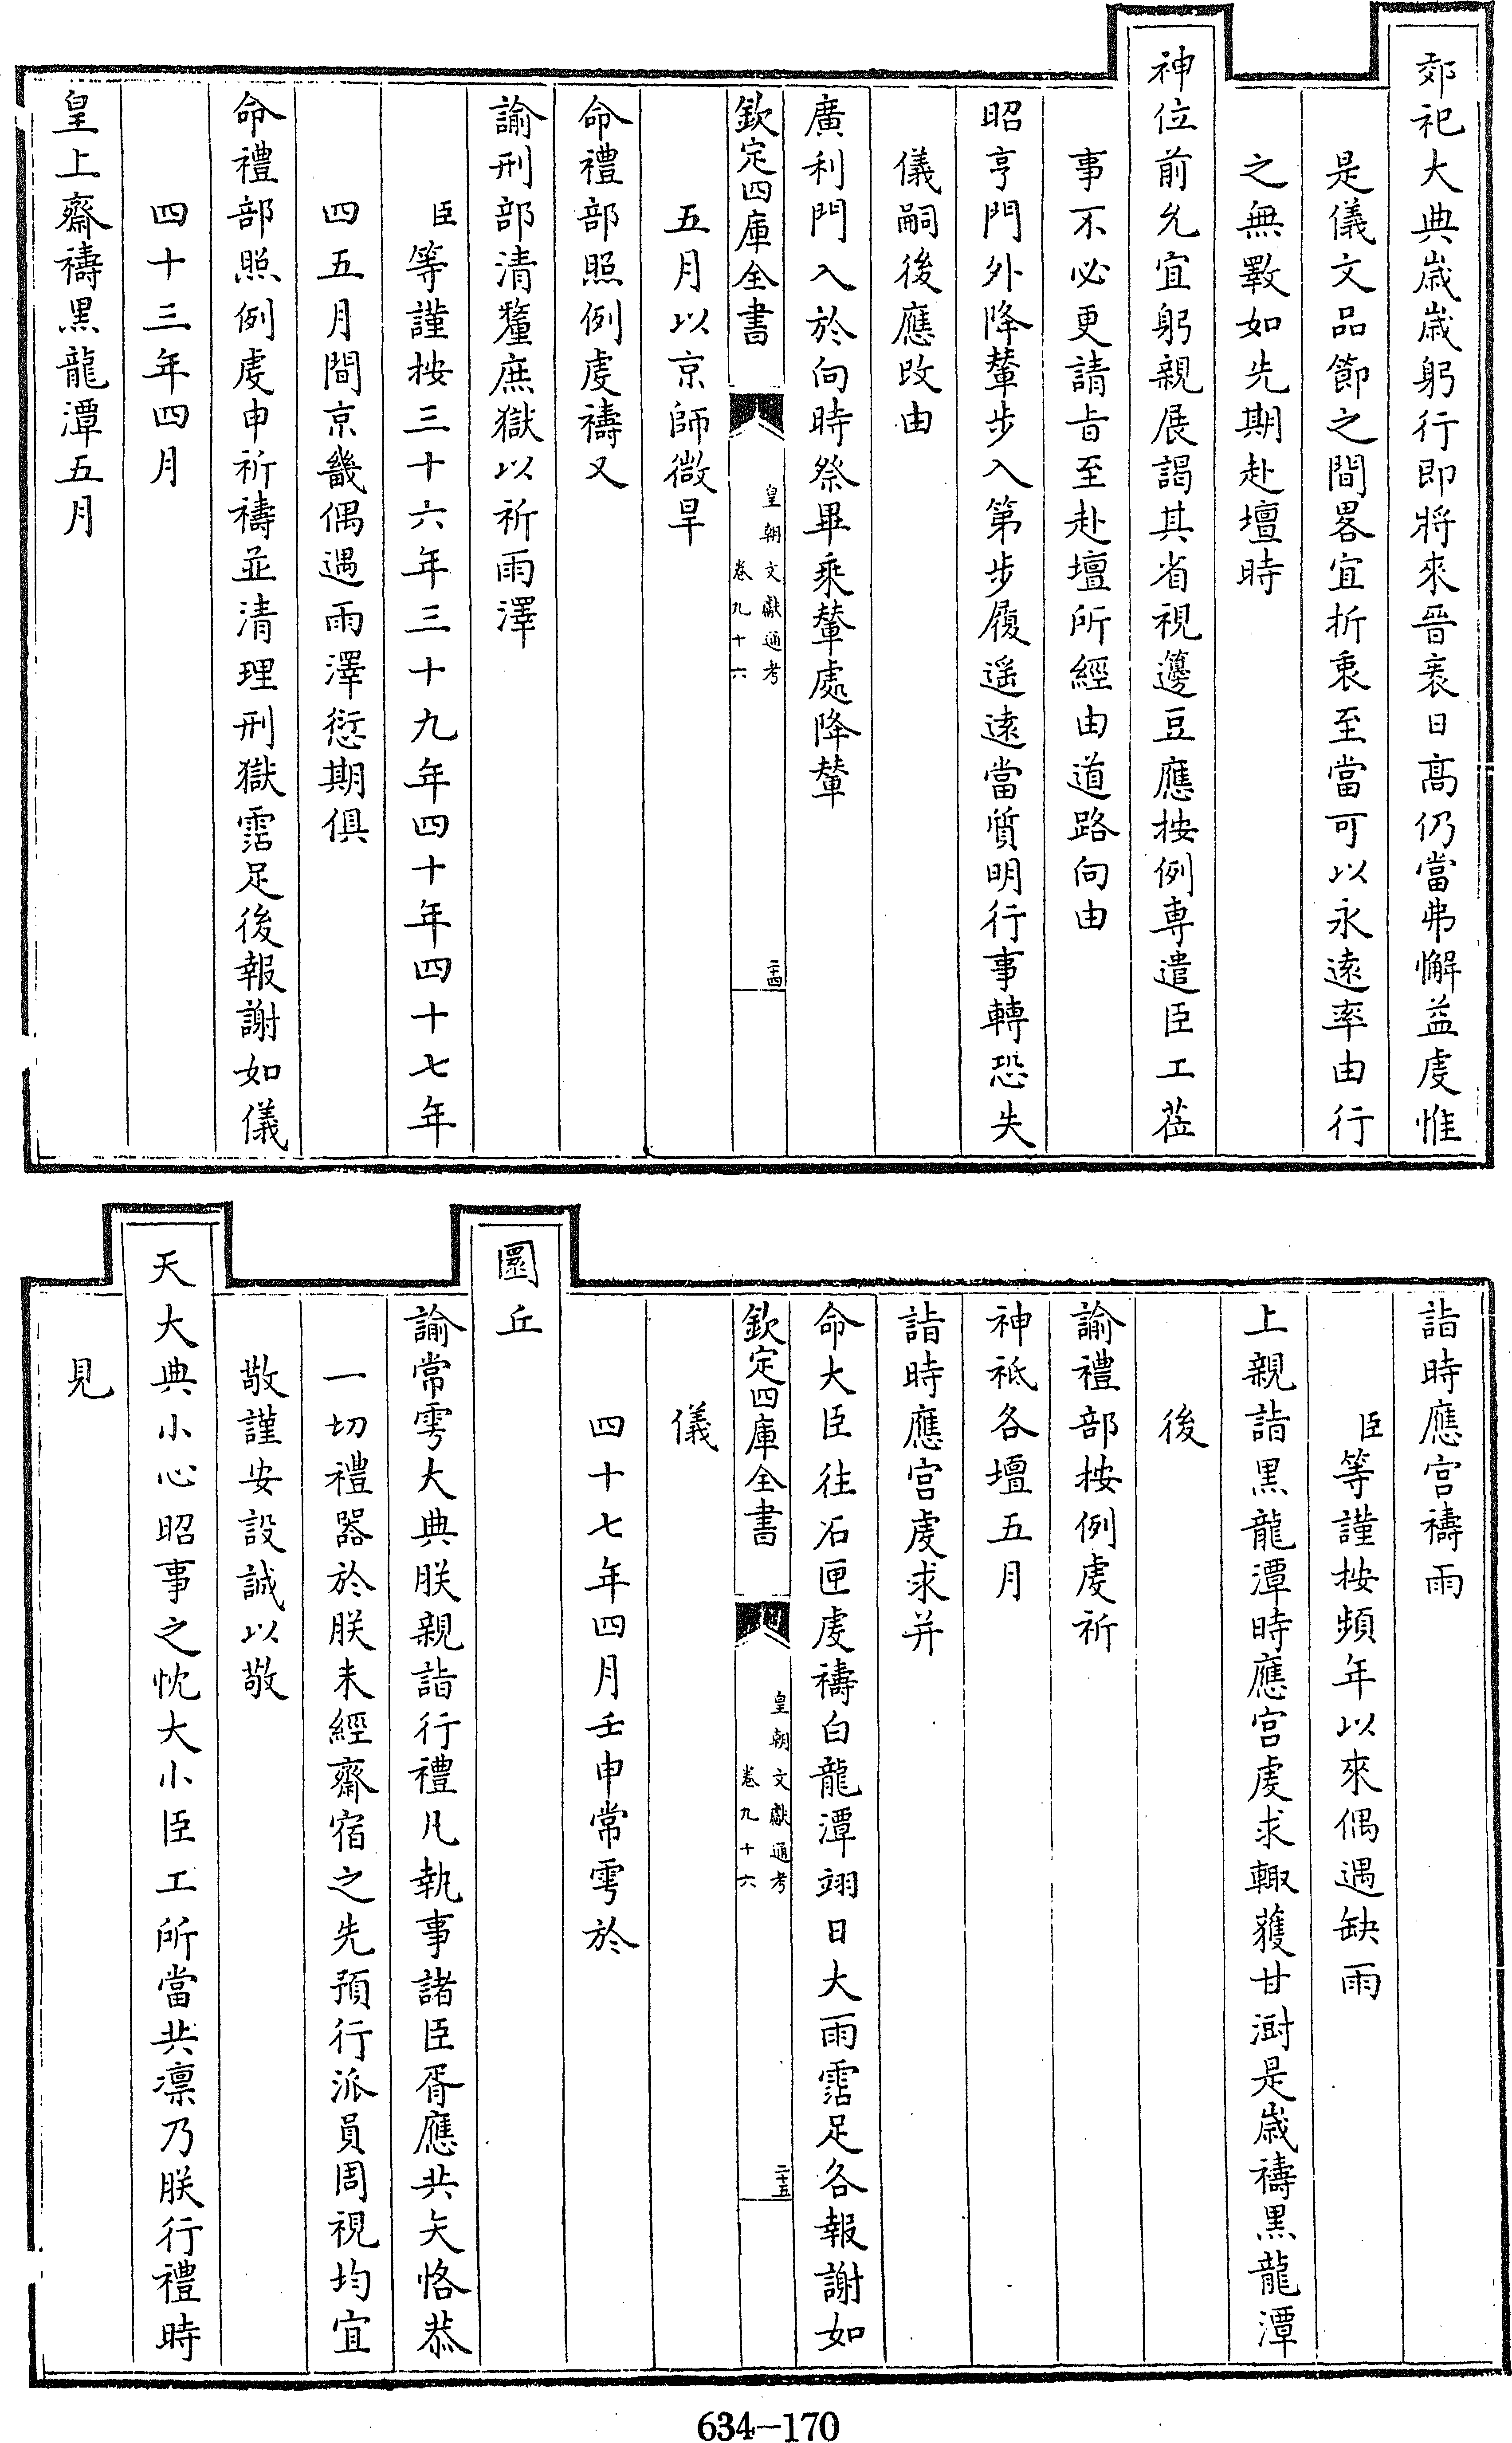 郊祀大典歲歲躬行即將來晉袠日髙仍當弗懈益虔惟
是儀文品節之間畧宜折衷至當可以永遠率由行
之無斁如先期赴壇時
神位前允宜躬親展謁其省視籩豆應按例専遣臣工蒞
事不必更請㫖至赴壇所經由道路向由
昭亨門外降輦步入第步履遥遠當質明行事轉恐失
儀嗣後應改由
廣利門入於向時祭畢乘輦處降輦
欽定四庫全書
皇朝文獻通考
卷九十六
二十四
五月以京師微旱
命禮部照例虔禱又
諭刑部清釐庶獄以祈雨澤
臣等謹按三十六年三十九年四十年四十七年
四五月間京畿偶遇雨澤愆期俱
命禮部照例虔申祈禱並清理刑獄霑足後報謝如儀
四十三年四月
皇上齋禱黒龍潭五月
詣時應宫禱雨
臣等謹按頻年以來偶遇缺雨
上親詣黒龍潭時應宫虔求輙獲甘澍是歳禱黒龍潭
後
諭禮部按例虔祈
神祇各壇五月
詣時應宫虔求并
命大臣往石匣虔禱白龍潭翊日大雨霑足各報謝如
欽定四庫全書
皇朝文獻通考
卷九十六
二十五
儀
四十七年四月壬申常雩於
圜丘
諭常雩大典朕親詣行禮凡執事諸臣胥應共矢恪恭
一切禮器於朕未經齋宿之先預行派員周視均宜
敬謹安設誠以敬
天大典小心昭事之忱大小臣工所當共凛乃朕行禮時
見
634-170